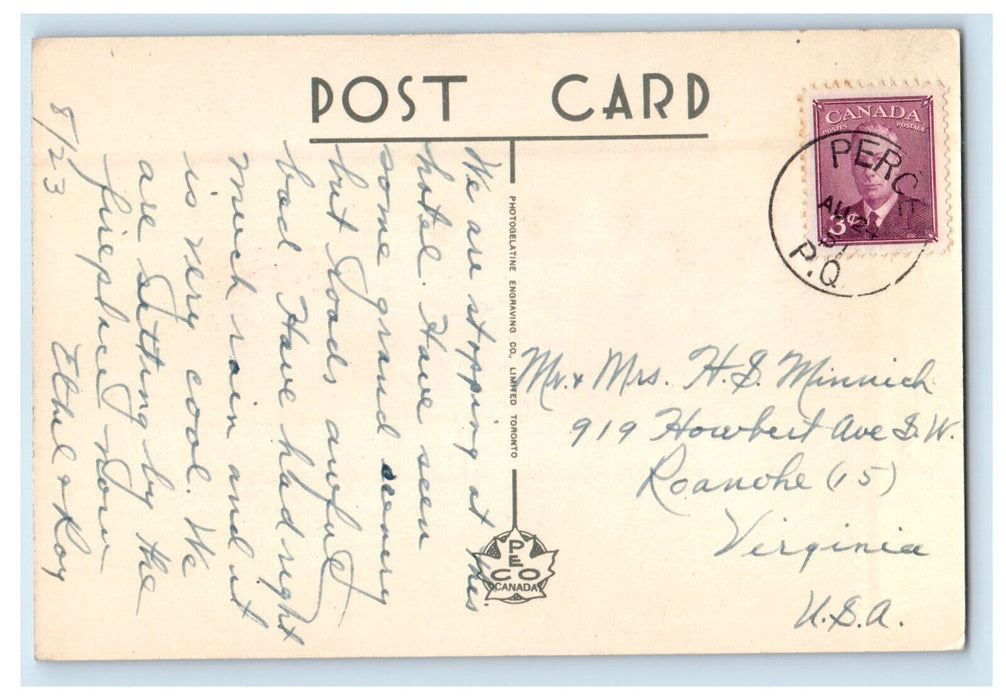 POST CARD
CANADA
POSTES POSTAGE
3¢
PERCÉ
AU 24
51
P.Q.
8/23
We are stopping at this
hotel. Have seen
some grand scenery
but roads awful
bad. Have had right
much rain and it
is very cool. We
are sitting by the
fireplace now
Ethel & Roy
PHOTOGELATINE ENGRAVING CO., LIMITED TORONTO
PECO
CANADA
Mr. & Mrs. H. S. Minnich
919 Howbert Ave S.W.
Roanoke (15)
Virginia
U.S.A.